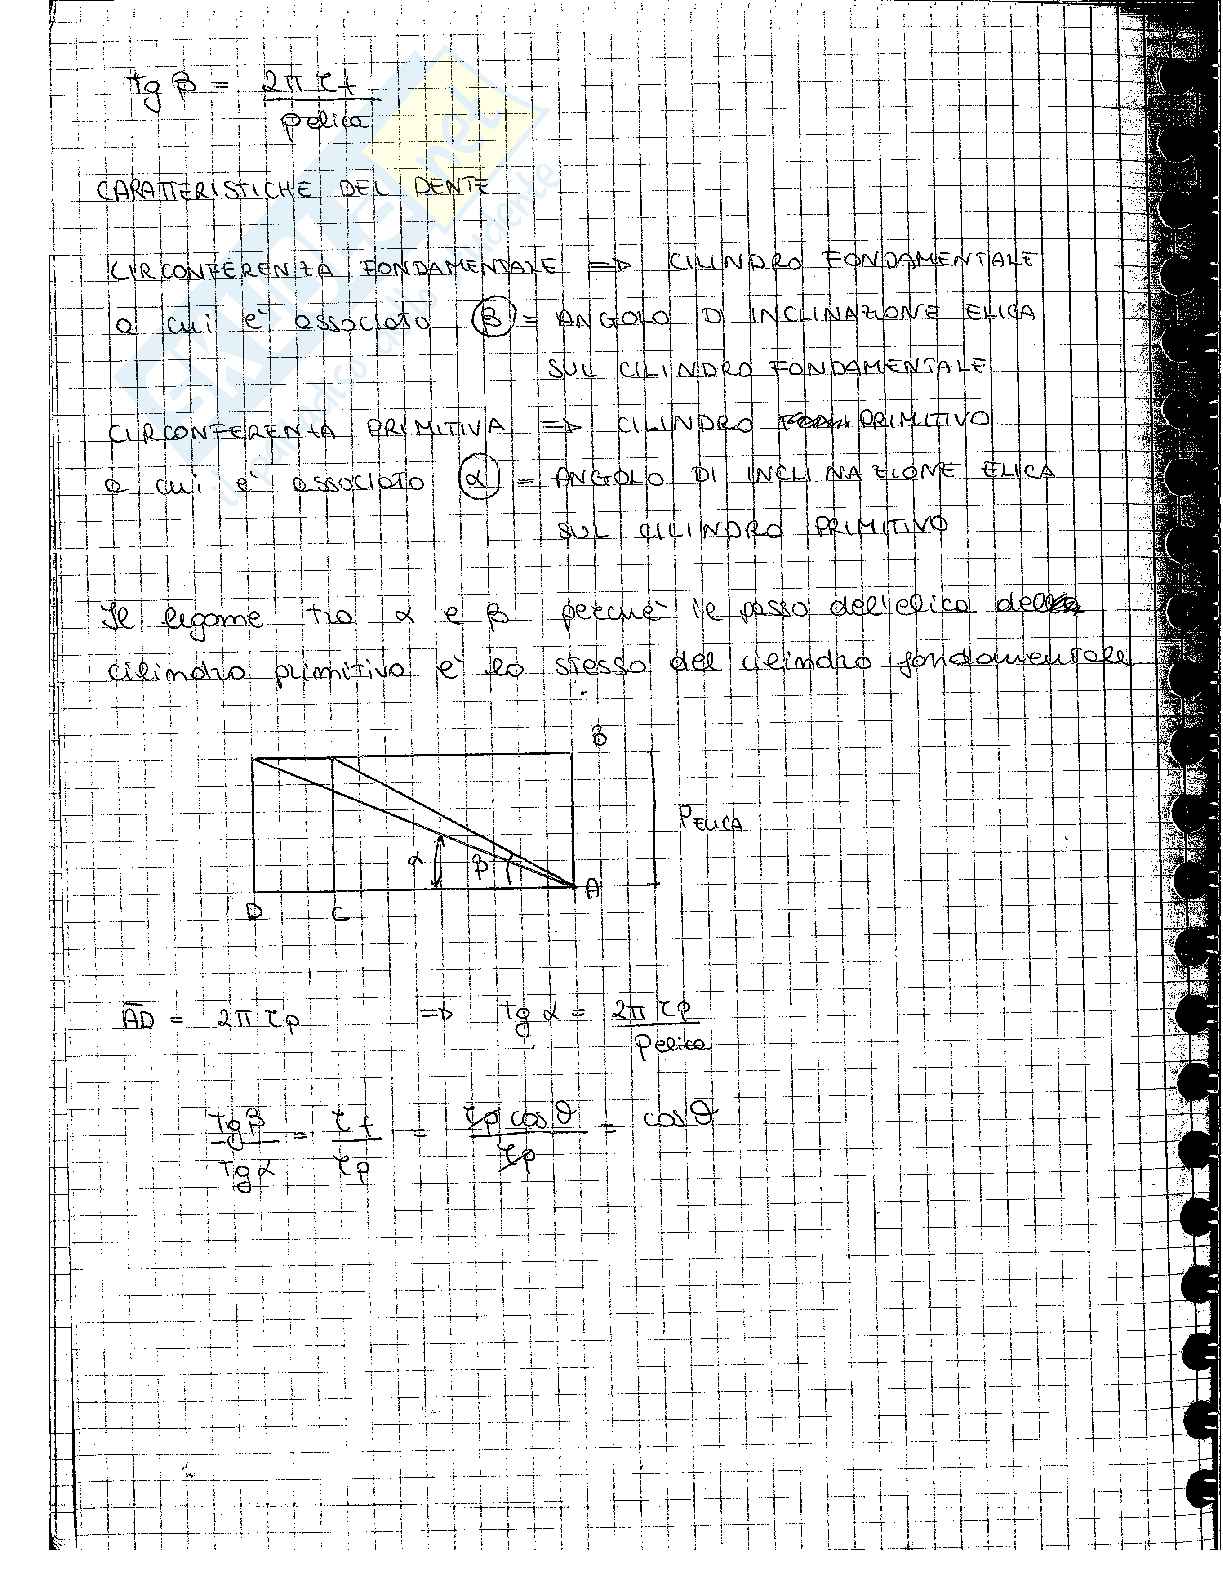 tg β = 2π rf / pelica
CARATTERISTICHE DEL DENTE
CIRCONFERENZA FONDAMENTALE => CILINDRO FONDAMENTALE
a cui è associato β = ANGOLO DI INCLINAZIONE ELICA
SUL CILINDRO FONDAMENTALE
CIRCONFERENZA PRIMITIVA => CILINDRO PRIMITIVO
a cui è associato α = ANGOLO DI INCLINAZIONE ELICA
SUL CILINDRO PRIMITIVO
Il legame tra α e β perché le passo dell'elica del
cilindro primitivo è lo stesso del cilindro fondamentale
B
PELICA
α β A
D C
AD = 2π rp => tg α = 2π rp / pelica
tg β / tg α = rf / rp = rp cos θ / rp = cos θ